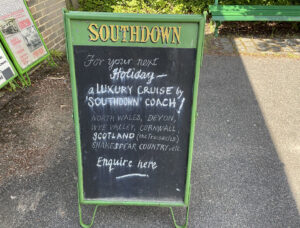 SOUTHDOWN
For your next
Holiday —
a LUXURY CRUISE by
'SOUTHDOWN' COACH!
NORTH WALES, DEVON,
WYE VALLEY, CORNWALL
SCOTLAND (the Trossachs)
SHAKESPEAR COUNTRY, etc.
Enquire here